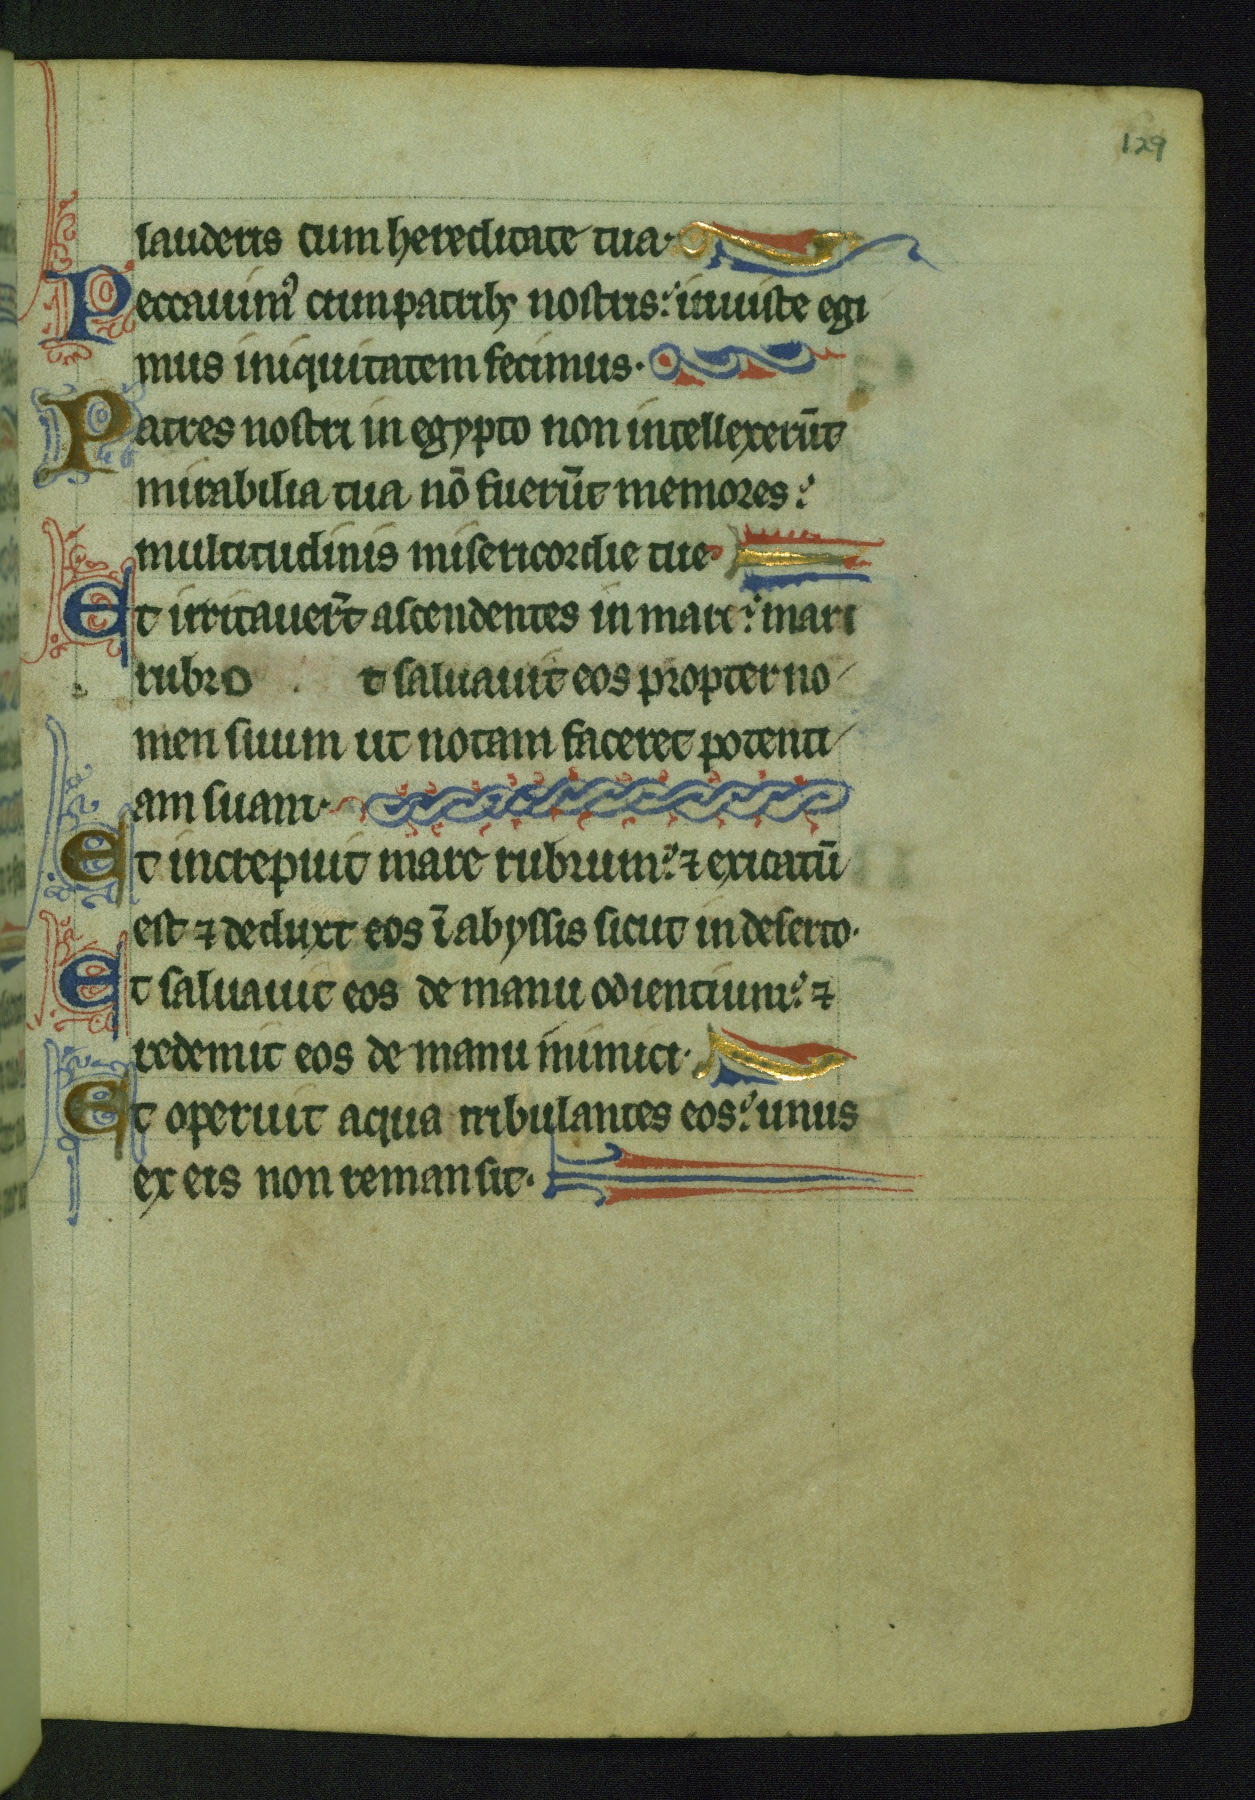 129
lauderis cum hereditate tua·
Peccauim⁹ cum patrib; nostris: iniuiste egi
mus iniquitatem fecimus·
Patres nostri in egypto non intellexerūt
mirabilia tua nō fuerūt memores:
multitudinis misericordie tue
Et irritauer̄t ascendentes in mare: mari
rubro t saluauit eos propter no
men suum ut notam faceret potenti
am suam·
Et increpiuit mare rubrum: ⁊ exicatū
est ⁊ deduxt eos ī abyssis sicut in deserto·
Et saluauit eos de manu odientium: ⁊
redemit eos de manu inimici·
Et operuit aqua tribulantes eos: unus
ex eis non remansit·